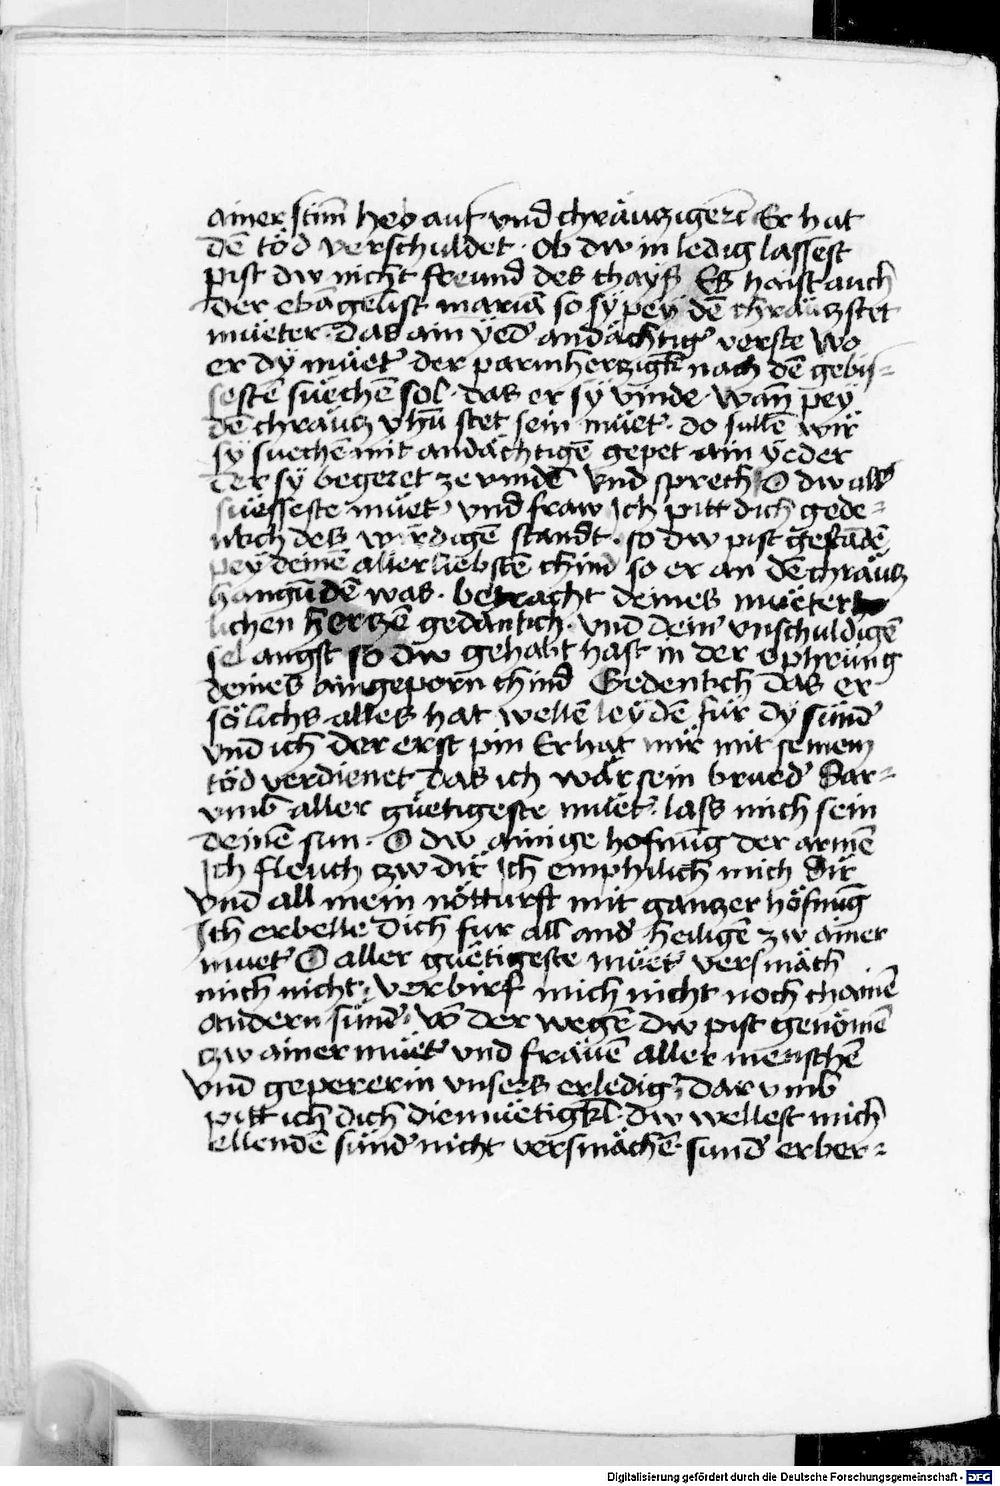 ainer stim̄ heb auf vnd chräuczigt̄ Er hat
dē töd verschuldet · Ob dw in ledig lassest
pist dw nicht freund des chayß Es haist auch
der ebāgelist mariā so sy pey dē chräucz stet
müeter · das ain yed' andächtig' verste wo
er dy müet' der parmherczigk̄ nach dē gebis=
sestē süechē sol · das er sy vinde · wan̄ pey
dē chräucz yhū stet sein müet' · do sullē wir
sy suechē mit andächtigē gepet ain yeder
der sy begeret ze vindē Vnd sprech O dw all'
süesseste müet' vnd fraw Ich pitt dich gede=
nkch des wirdigē standt · so dw pist gestādē
pey deinē allerliebstē chind so er an dē chräucz
hangūdē was · betracht deines müeter
lichen herczē gedankch · vnd dein' vnschuldigē
sel angst so dw gehabt hast in der ophrüng
deines aingeporn̄ chind Gedenkch das er
sölichs alles hat wellē leydē für dy sünd'
vnd ich der erst pin Er hat mir mit seinem
töd verdienet das ich wär sein brued' Dar=
vmb aller güetigeste müet' · lass mich sein
deinē sun · O dw ainige hofnūg der armē
Ich fleuch czw dir Ich emphilich mich Dir
vnd all mein nötturft mit ganczer höfnūg
Ich erbelle dich fur all and' heiligē zw ainer
muet' O aller güetigeste müet' versmäch
mich nicht · verbirf mich nicht noch chainē
andern sünd' · vō der wegē dw pist genömē
czw ainer müet' vnd fräuē aller menschē
vnd gepererin vnsers erledig' · dar vmb
pitt ich dich diemüetigkl̄ · dw wellest mich
ellendē sünd' nicht versmächē · sund' erber=
Digitalisierung gefördert durch die Deutsche Forschungsgemeinschaft - DFG